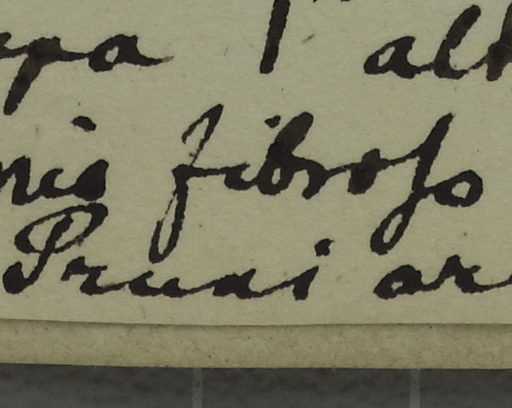 alt
nis fibroso
Pruni ar